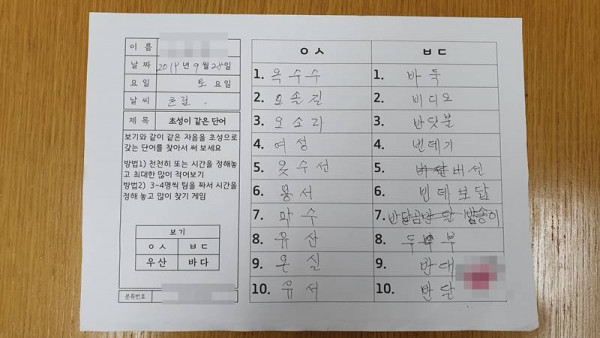 이 름
날 짜 2019년 9월 28일
요 일 토 요일
날 씨
제 목 초성이 같은 단어
보기와 같이 같은 자음을 초성으로
갖는 단어를 찾아서 써 보세요
방법1) 천천히 또는 시간을 정해놓
고 최대한 많이 적어보기
방법2) 3~4명씩 팀을 짜서 시간을
정해 놓고 많이 찾기 게임
보기
ㅇㅅ ㅂㄷ
우산 바다
분류번호
ㅇㅅ ㅂㄷ
1. 옥수수 1. 바둑
2. 오솔길 2. 비디오
3. 오소리 3. 반딧불
4. 여성 4. 빈데기
5. 5.
6. 용서 6. 빈데
7. 7.
8. 유산 8.
9. 온실 9. 반대
10. 유서 10. 반달